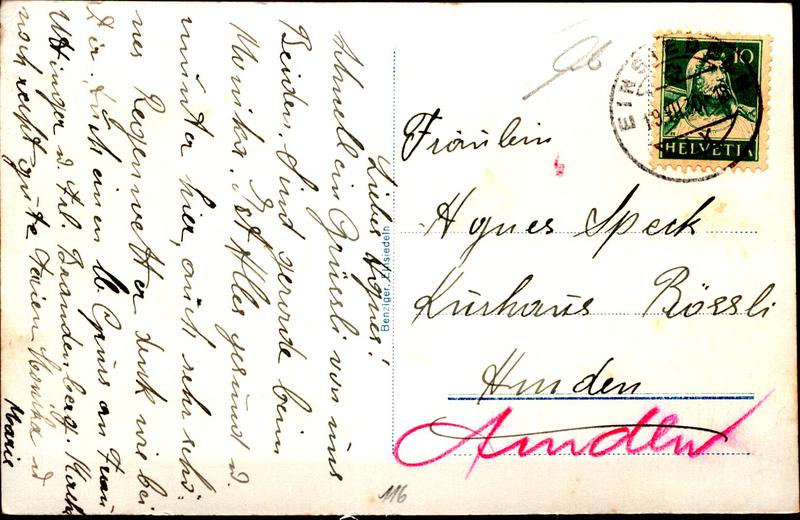 Liebes Agnes!
Schnell ein Grüessli von uns
Beiden. Sind gerade beim
Monika. Ist Alles gesund u.
munter hier, auch sehr schö-
nes Regenwetter dank wie bei
Dir. Auch einen lb Gruss an Frau
Uttinger u. Frl. Brandenberg.
noch recht gute Ferien Monika u
Marie
Benziger, Einsiedeln
Fräulein
Agnes Speck
Kurhaus Rössli
Amden
Amden
116
EINSIEDELN
10
HELVETIA